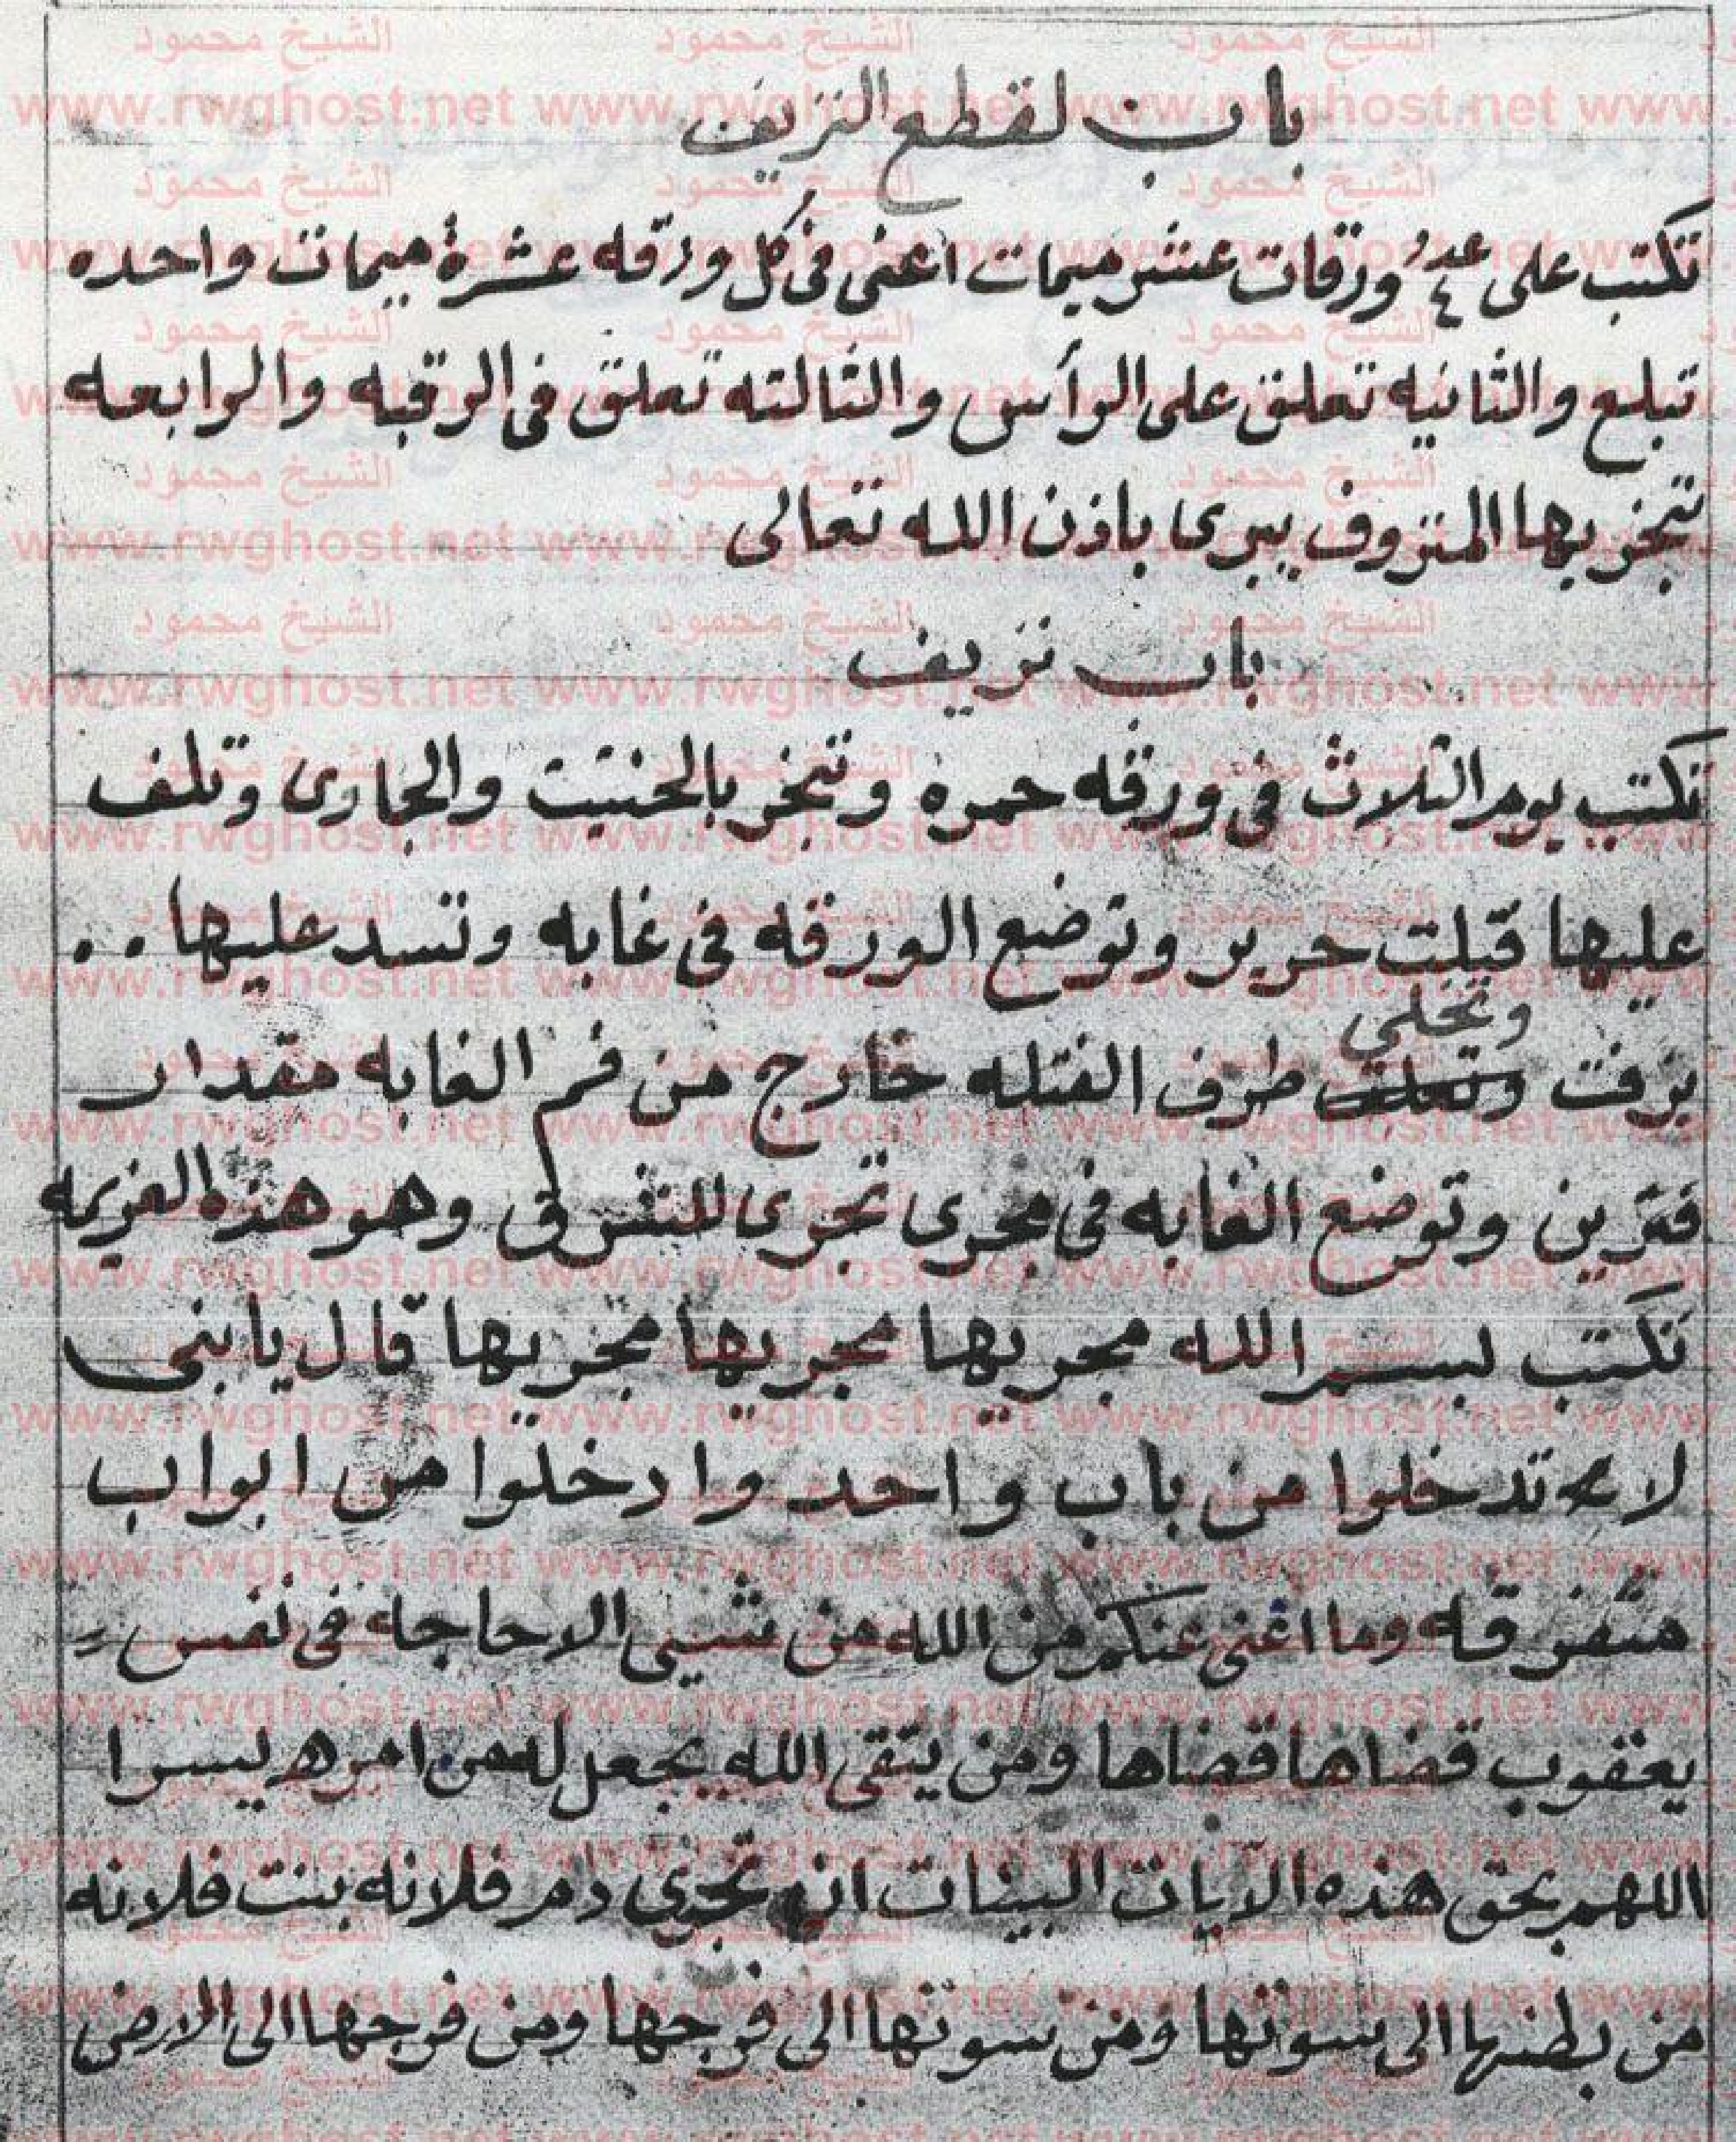 باب لقطع النزيف
تكتب على عدد ٤ ورقات عشر ميمات اعنى فى كل ورقه عشرة ميمات واحده
تبلع والثانيه تعلق على الرأس والثالثه تعلق فى الرقبه والرابعه
تتبخر بها المنزوف يبرى باذن الله تعالى
باب نزيف
تكتب يوم الثلاث فى ورقه حمره وتبخر بالحنتيت والجاوى وتلف
عليها فتلت حرير وتوضع الورقه فى غابه وتسد عليها ..
وتخلي
بزفت طرف الفتله خارج من فم الغابه مقدار
فترين وتوضع الغابه فى مجرى تجرى للنشوقى وهو هذه العزيمه
تكتب لبسم الله مجريها مجريها مجريها قال يابنى
لا تدخلوا من باب واحد وادخلوا من ابواب
متفرقه وما اغنى عنكم من الله من شيىء الا حاجه فى نفس
يعقوب قضاها قضاها ومن يتقى الله يجعل له من امره يسرا
اللهم بحق هذه الآيات البينات ان تجري دم فلانه بنت فلانه
من بطنها الى سوتها ومن سوتها الى فرجها ومن فرجها الى الارض
الشيخ محمود
www.rwghost.net